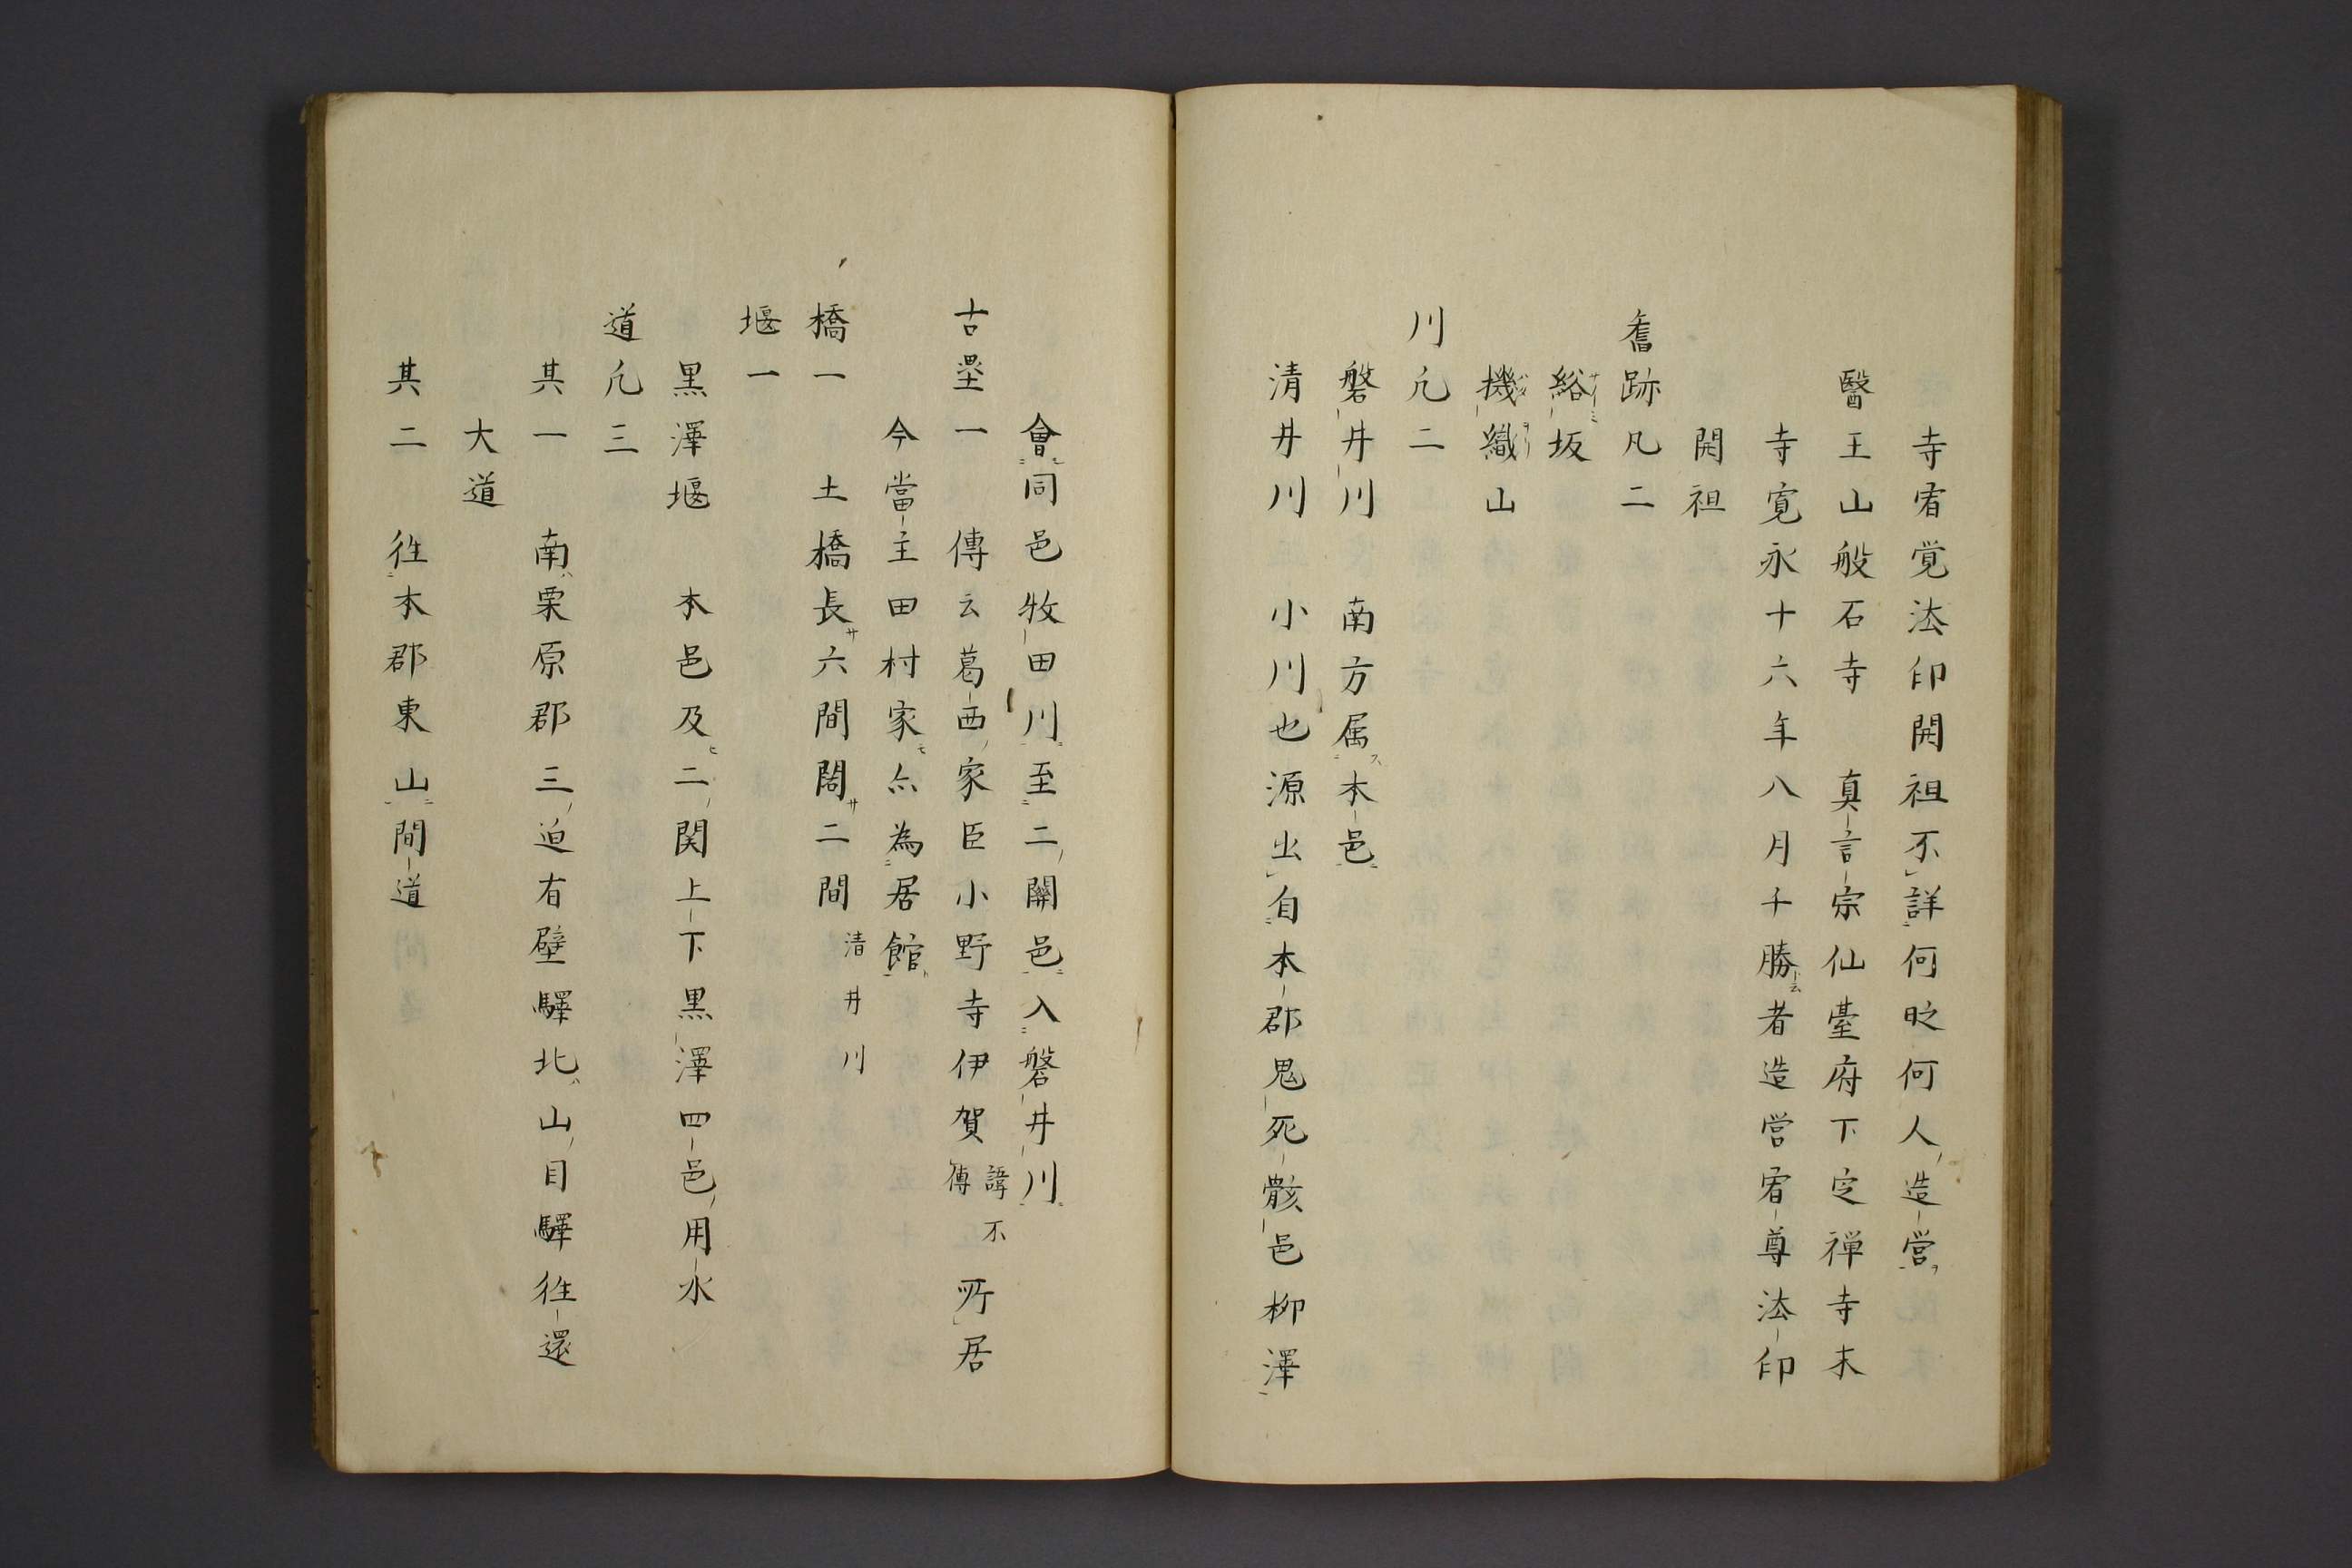 寺宥覚法印開祖不詳何時何人造営
醫王山般石寺　真言宗仙臺府下定禅寺末
寺寛永十六年八月千勝者造営宥尊法印
開祖
舊跡凡二
谿坂
機織山
川凡二
磐井川　南方属本邑
清井川　小川也源出自本郡鬼死骸邑柳澤
會同邑牧田川至二關邑入磐井川
古壘一　傳云葛西家臣小野寺伊賀諱不傳所居
今當主田村家亦為居館
橋一　土橋長六間闊二間　清井川
堰一
黒澤堰　本邑及二関上下黒澤四邑用水
道凡三
其一　南栗原郡三迫有壁驛北山目驛往還
大道
其二　往本郡東山間道